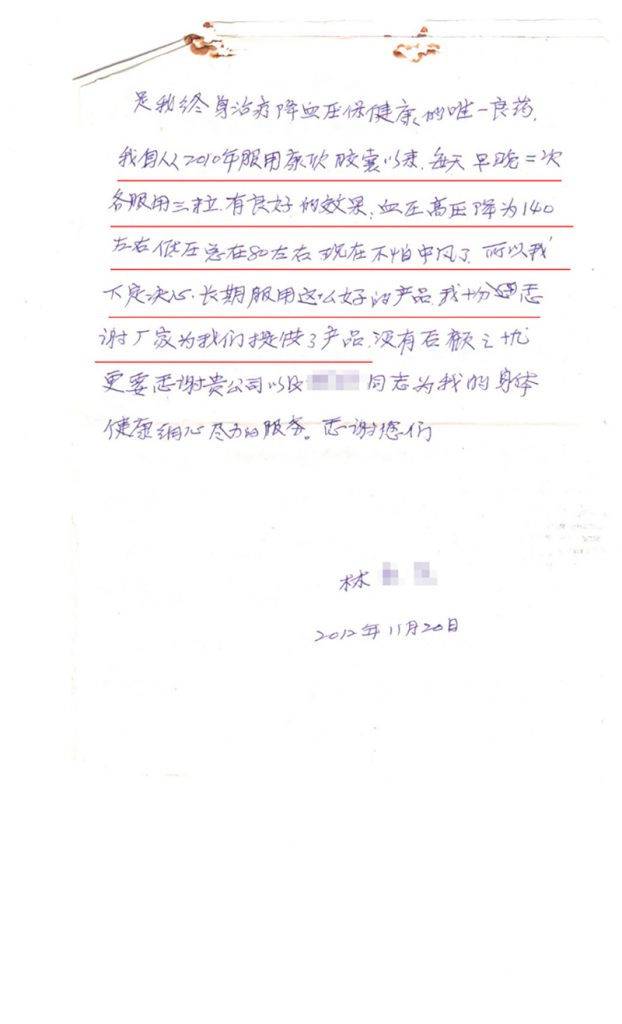 是我终身治疗降血压保健康的唯一良药.
我自从2010年服用康欣胶囊以来.每天早晚二次
各服用三粒.有良好的效果.血压高压降为140
左右低压总在80左右现在不怕中风了.所以我
下定决心.长期服用这么好的产品.我十分感
谢厂家为我们提供了产品.没有后顾之忧
更要感谢贵公司以及 同志为我的身体
健康细心尽力的服务。感谢您们
林
2012年11月20日